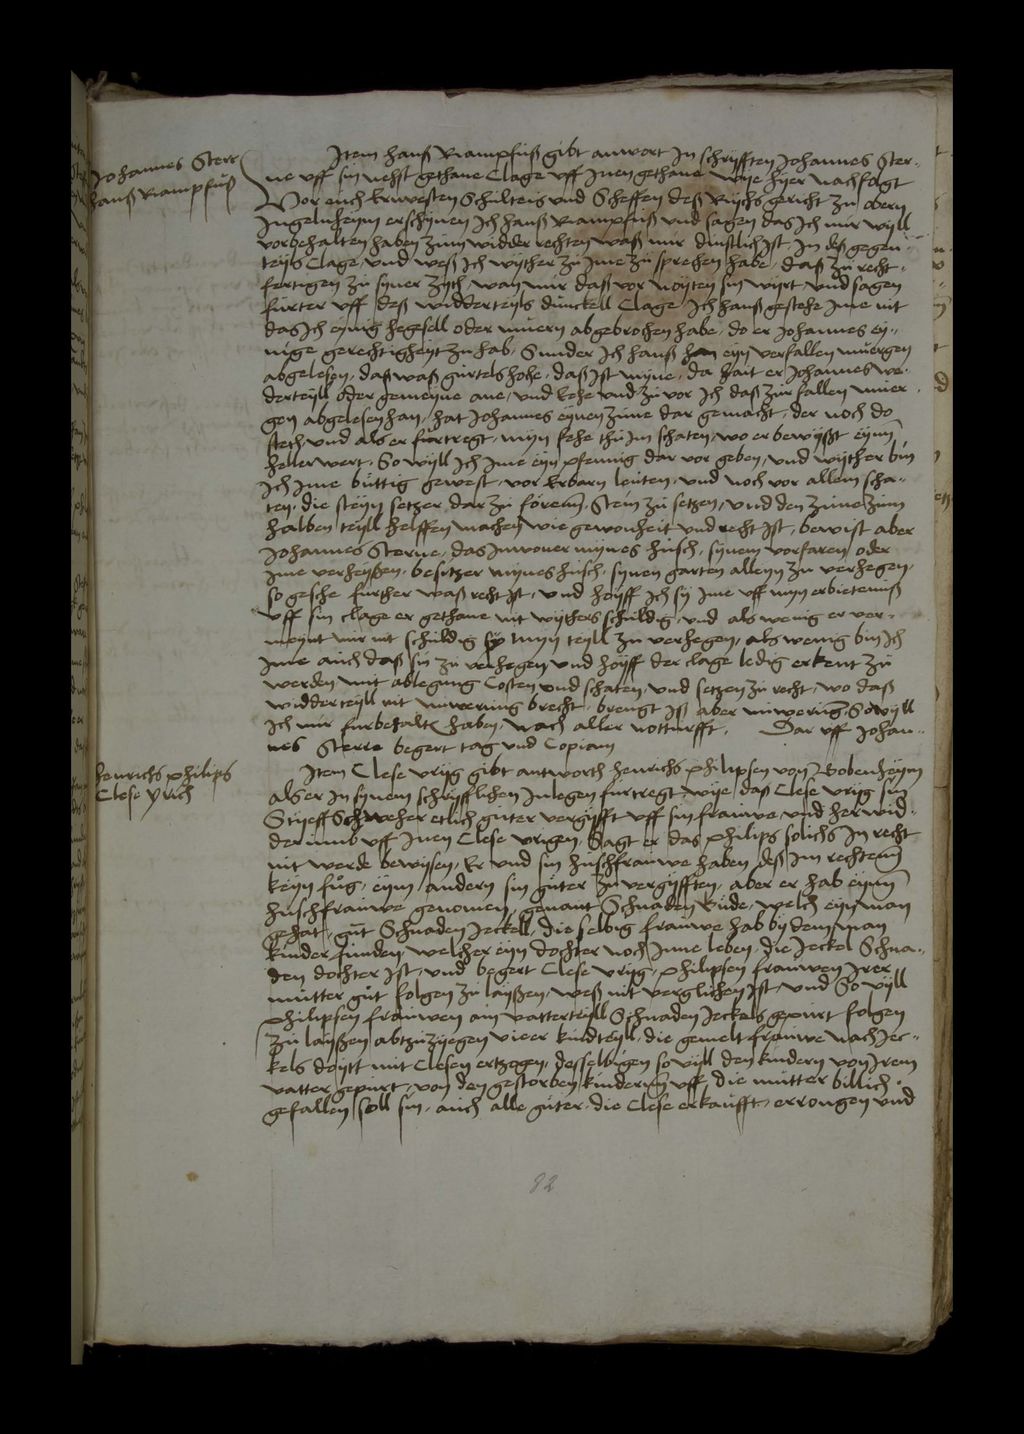 Johannes Sterr
Hanß Rampfuß
Item Hanß Rampfuß gibt anwort in schryfften Johannes Ster-
ne uff sin nehst gethane clage uff inen gethane wye hyer nachfolgt
Vor euch ernvesten Schulteis und Scheffen deß Rychsgericht zu obern
Ingelnheym erschynen ich Hanß Rampfuß und sagen das ich mir wyll
vorbehalten haben zum widder rechten waß mir dinstlich ist in deß gegen-
teyls clage und weß ich wyther zu ime zu sprehen habe daß zu recht-
fertigen zu syner zyth wan mir daß vor noyten sin wyrt und sagen
furter uff deß widderteyls dunckell clage ich Hanß gestehe ime nit
das ich eynig hegesell oder muern abgebrohen habe do er Johannes ey-
nige gerechtigheyt zu hab sunder ich Hanß han eyn verfallen muergen
abgelesen daß waß gurtels hohe daß ist myne da hait er Johannes we-
derteyll oder gemeyne ane und kehe und zuvor ich daß zur fallen muer-
gen abgelesen han hat Johannes eynen zune dar gemacht der noch do
steth und als er furtregt myn fehe thu im schaten wo er bewyßt eynn
heller wert So wyll ich ime eyn pfennig dar vor geben und wyther bin
ich ime buttig gewest vor erbarn leuten und noch vor allem scha-
ten die steyn setzer dar zu foren stein zu setzen und den zune zum
halben teyll helffen machen wie gewonheit und recht ist bewist aber
Johannes Sterne das inwoner mynes husch synem vorfaren oder
ime verheyßen besitzer mynes husch synen garten alleyn zu verhegen
so geshe further waß recht ist und hoyff ich sy ime uff myn erbieteniß
uff sin clage er gethane nit wythers schuldig und als wenig er ver-
meynt mir nit schuldig sy myn teyll zu verhegen als wenig bin ich
ime auch daß sin zu verhegen und hoyff der clage ledig erkent zu
werden mit ablegung costen und schaten und setzen zu recht wo daß
widderteyll nit nuwerung brecht brengt iß aber nuwerung So wyll
ich mir furbehalten haben nach aller notturfft Dar uff Johan-
nes Sterre begert tag und Copiam
Henrichs Philips
Clese Vrich
Item Clese Vryg gibt antworth Henrichs Philipsen von Bobenheym
als er in synem schryfftlichen inlegen furtregt wye daß Clese Vryg sin
Styeff Schweher etlich guter vergyfft uff sin frauwe und herwid-
derumb uff inen Clese Vrigen Sagt er das Philips solichs in recht
nit werde bewysen Er und sin huschfrauwe haben deß im rechten
keyn fug eym andern sin guter zu vergyfften aber er hab eynn
huschfrauwe genomen genant Schnaden Kude welch eyn man
gehat gnt Schnaden Jeckell die selbig frauwe hab by dem man
kinder funden welcher eyn dochter noch inne leben die Jeckel Schna-
den dochter ist und begert Clese Vryg Philipsen frauwen irer
mutter gut folgen zu layßen weß nit verglichen ist und So vyll
Philipsen frauwen am vatterteyll Schnaden Jeckels gepurt folgen
zu layßen abtzuzyegen vieer kindteyll die gemelt frauwe nach Jec-
kels doytt mit Clesen ertzogen desselbigen so vyll den kindern von irem
vatter gepurt von den gestorben kindern uff die mutter billich
gefallen soll sin auch alle guter die Clese erkaufft errongen und
82